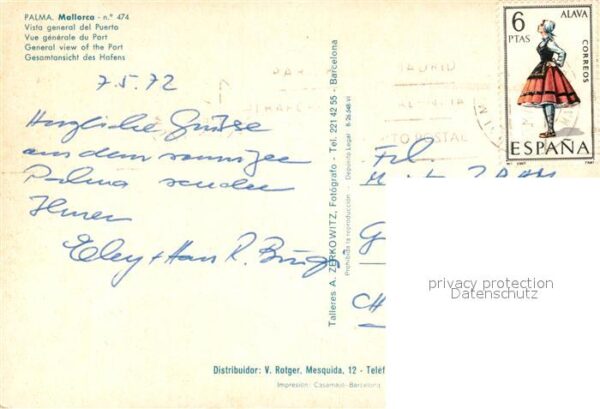 PALMA. Mallorca - n.º 474
Vista general del Puerto
Vue générale du Port
General view of the Port
Gesamtansicht des Hafens
7.5.72
Herzliche Grüsse
aus dem sonnigen
Palma senden
Ihnen
Elley + Hans R.
Talleres A. ZERKOWITZ, Fotógrafo - Tel. 221 42 55 - Barcelona
Prohibida la reproducción - Depósito Legal
6
PTAS
ALAVA
CORREOS
ESPAÑA
MADRID
POSTAL
Frl.
G
CH
privacy protection
Datenschutz
Distribuidor: V. Rotger, Mesquida, 12 - Teléf
Impresión: Casamajó-Barcelona